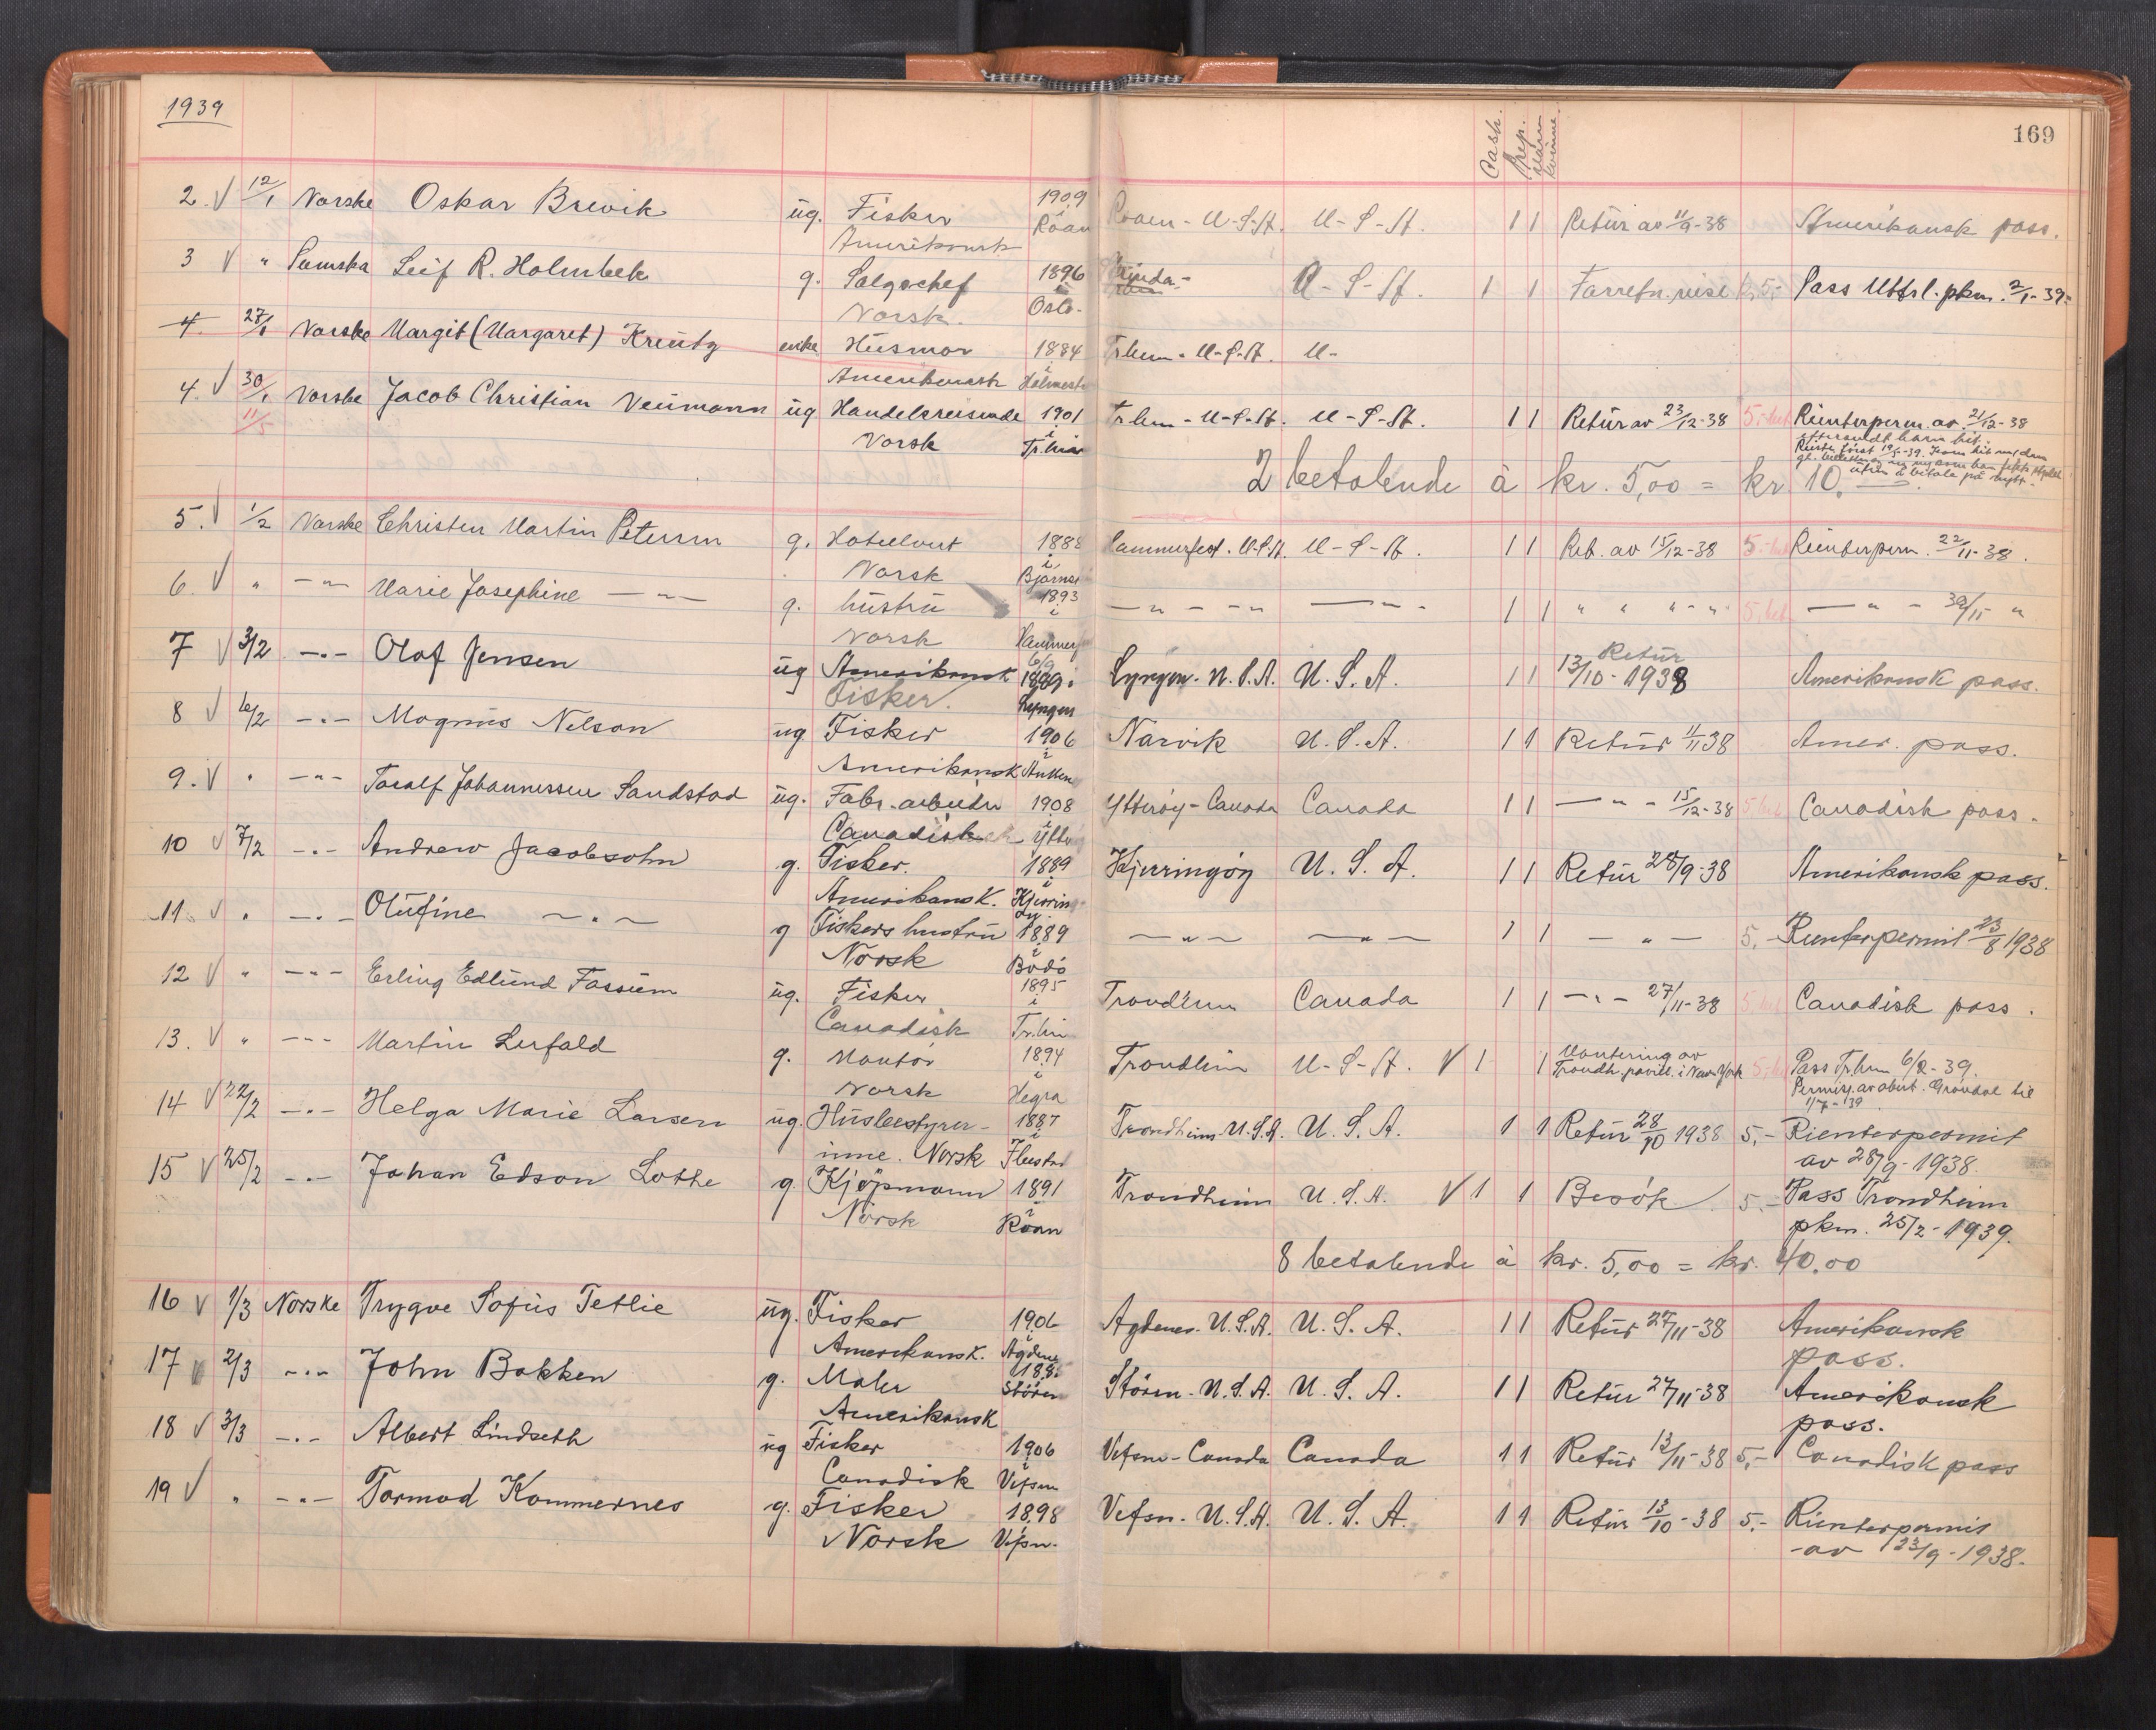 1939
169
Cash. Prep. Mann Kvinne
2. V 12/1 Norske Oskar Brevik ug. Fisker 1909 Roan Roan - U-S-A. U-S-A. 1 1 Retur av 11/9-38 Amerikansk pass.
Amerikansk
3 V " Svenska Leif R. Holmbek g. Salgschef 1896 i Oslo. Strinda - U-S-A. 1 1 Forretn. reise kr 5,- Pass Utfrl. pkm. 2/1-39.
Norsk.
4. 27/1 Norske Margit (Margaret) Kreutz enke Husmor 1884 i Trhm - U-S-A. U-
Amerikansk Holmestr
4. V 30/1 Norske Jacob Christian Neumann ug Handelsreisende 1901 Trhm - U-S-A. U-S-A. 1 1 Retur av 23/12-38 5,- bet Rienterperm. av 21/12-38
11/5 Norsk i Tr.hm
2 betalende à kr. 5,00 = kr 10,
5. V 1/2 Norske Christen Martin Petersen g. Hotelvert 1888 Hammerfest - U.S.A. U-S-A. 1 1 Ret. av 15/12-38 5,- bet Rienterperm. 22/11-38.
Norsk i Bjørnør
6. V " -"- Marie Josephine -"- g. hustru 1893 i -"- -"- -"- 1 1 " " "-" 5, bet -"- 30/11 "
Norsk Hammerf
7 V 3/2 -"- Olaf Jensen ug Amerikansk 1889 i Lyngen - U.S.A. U.S.A. 1 1 Retur 13/10-1938 Amerikansk pass.
Fisker. Lyngen
8 V 6/2 -"- Magnus Nelson ug Fisker 1906 Narvik U.S.A. 1 1 Retur 11/11 38 Amer. pass.
Amerikansk i
9. V " -"- Toralf Johannessen Sandstad ug. Fabr.arbeider 1908 Ytterøy - Canada Canada 1 1 -"- 15/12-38 5, bet Canadisk pass.
Canadisk i Ytterø
10 V 7/2 -"- Andrew Jacobsohn g. Fisker. 1889 Kjerringøy U.S.A. 1 1 Retur 28/9-38 Amerikansk pass.
Amerikansk. i Kjerring
11. V " -"- Olufine -"- g Fiskers hustru 1889 -"- -"- 1 1 -"- 5,- Rienterpermit 23/8 1938
Norsk i Bodö
12 V " -"- Erling Edlund Fossum ug. Fisker 1895 i Trondhm Canada 1 1 -"- 27/11-38 5, bet Canadisk pass.
Canadisk Tr.hm
13. V " -"- Martin Lerfald g. Montör 1894 Trondhm U-S-A. V 1 1 Montering av 5, bet Pass Tr.hm 6/2-39.
Trondh. pavill. i New York
Norsk i Hegra Permisj. av abut. Gröndal til
1/7-39
14 V 22/2 -"- Helga Marie Larsen ug. Husbestyrer- 1887 Trondheim - U.S.A. U.S.A. 1 1 Retur 28/10 1938 5,- Rienterpermit
inne. Norsk i av 28/9-1938.
15 V 25/2 -"- Johan Edson Lothe g. Kjøpmann 1891 Trondheim U.S.A. V 1 1 Besök 5,- Pass Trondheim
Norsk i Roan pkm. 25/2-1939.
8 betalende à kr. 5,00 = kr. 40,00
16 V 1/3 Norske Trygve Sofus Tetlie ug. Fisker 1906 Agdenes - U.S.A. U.S.A. 1 1 Retur 27/11-38 Amerikansk
Amerikansk. i Agdene pass.
17 V 2/3 -"- John Bakken g. Maler 188 Stören Stören - U.S.A. U.S.A. 1 1 Retur 27/11-38 Amerikansk
Amerikansk pass.
18 V 3/3 -"- Albert Lindseth ug Fisker 1906 Vefsn - Canada Canada 1 1 Retur 13/11-38 5,- Canadisk pass
Canadisk i Vefsn
19 V " -"- Tormod Kommernes g. Fisker 1898 Vefsn - U.S.A. U.S.A. 1 1 Retur 13/10-38 5,- Rienterpermit
Norsk Vefsn. av 23/9-1938.